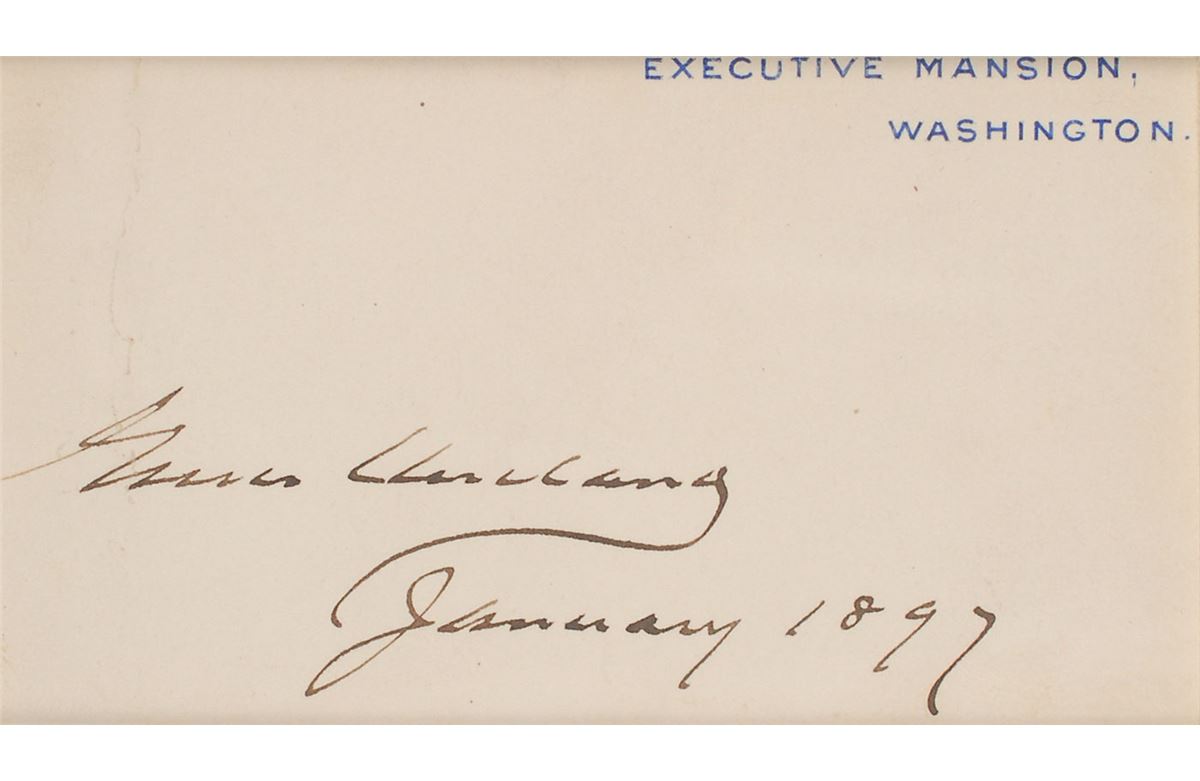 EXECUTIVE MANSION,
WASHINGTON.
Grover Cleveland
January 1897